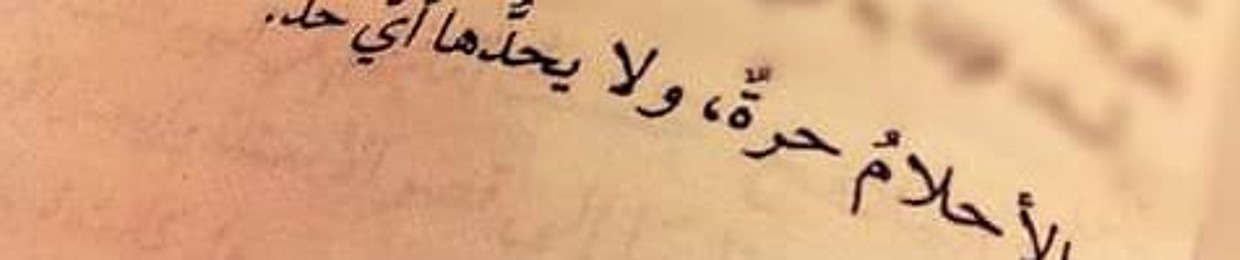 الأحلامُ حرةٌّ، ولا يحدَّها أيّ حد.